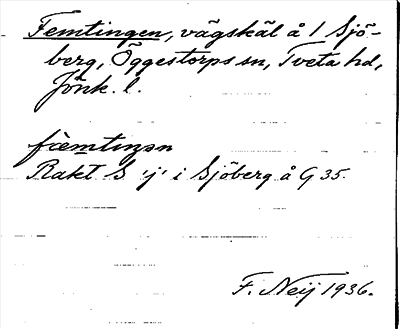 Femtingen, vägskäl å 1 Sjö-
berg, Öggestorps sn, Tveta hd,
Jönk. l.
fæmtiŋən
Rakt S 'j' i Sjöberg å G 35.
F. Neij 1936.